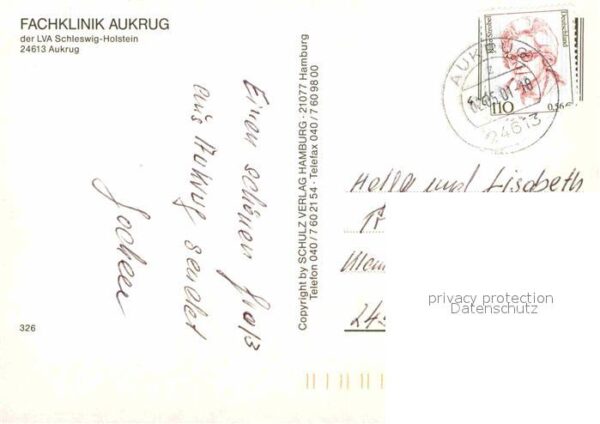 FACHKLINIK AUKRUG
der LVA Schleswig-Holstein
24613 Aukrug
Einen schönen Gruß
aus Aukrug sendet
Jochen
326
Copyright by SCHULZ VERLAG HAMBURG · 21077 Hamburg
Telefon 040 / 7 60 21 54 · Telefax 040 / 7 60 98 00
Deutschland
110
0,56 €
AUKRUG
24613
Hella und Lisabeth
privacy protection
Datenschutz